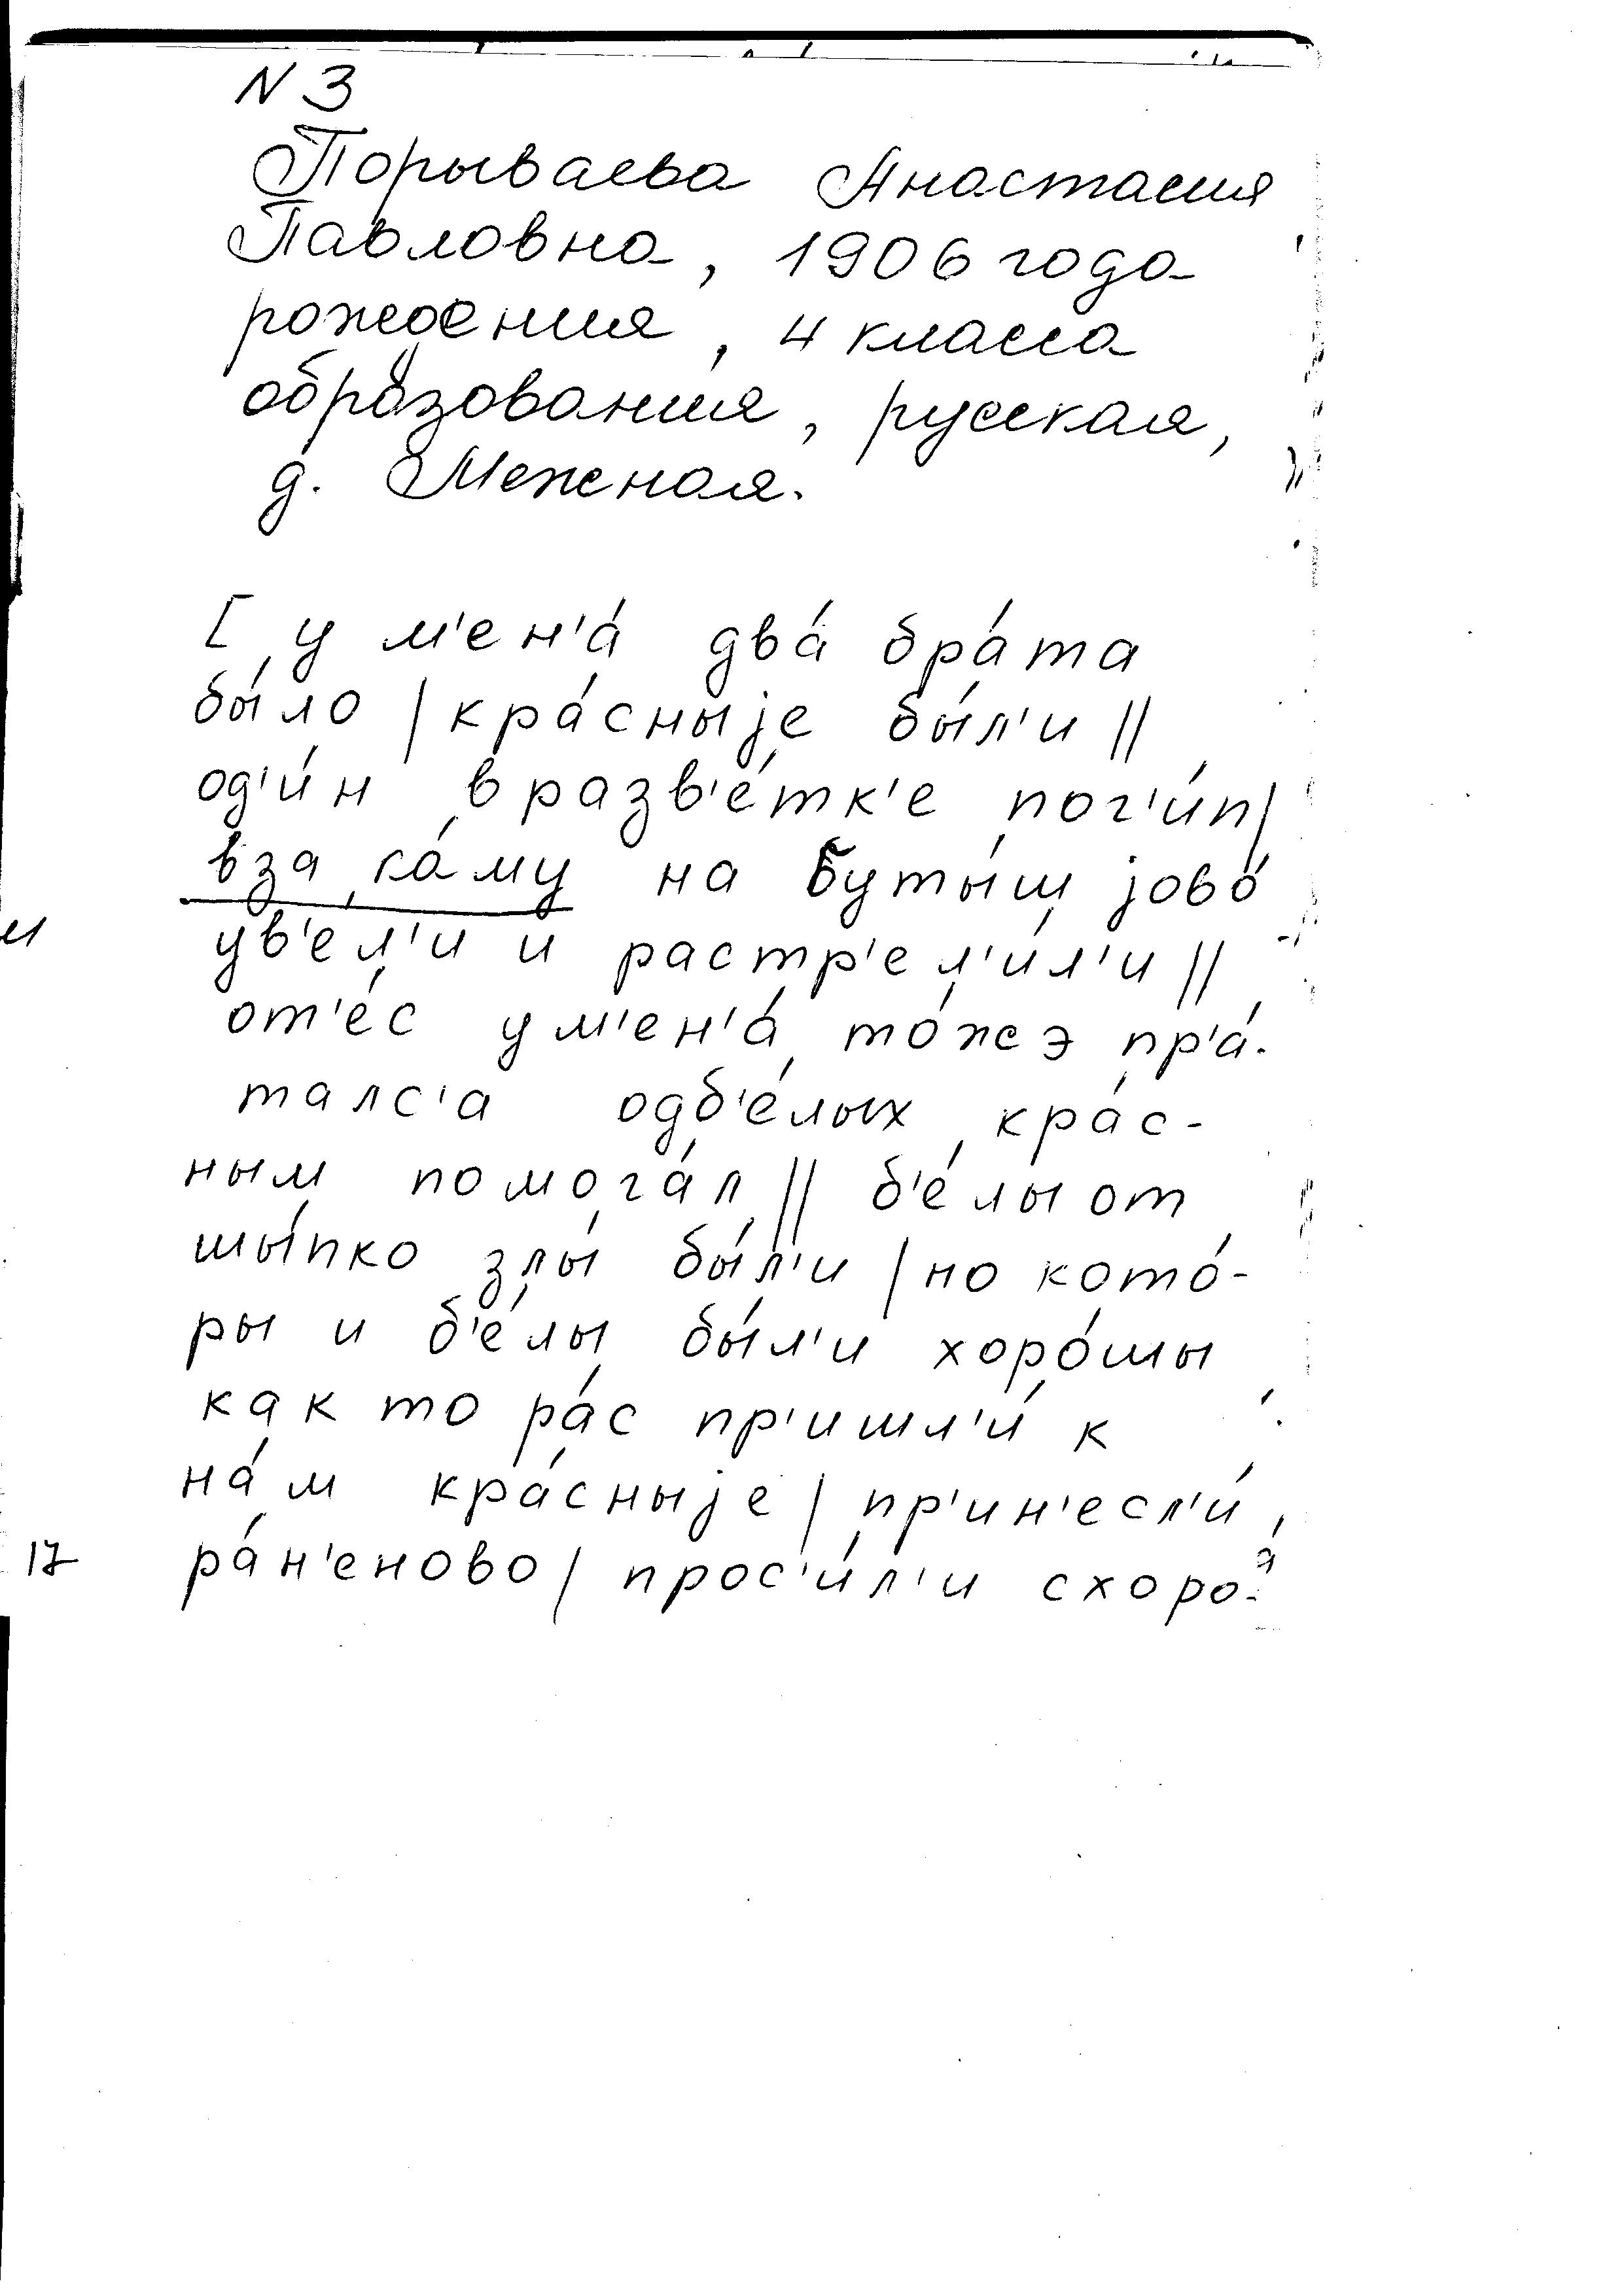 N 3
Порываева Анастасия
Павловна, 1906 года
рождения, 4 класса
образования, русская,
д. Межная.
[ у м'ен'а́ два́ бра́та
бы́ло | кра́сныjе бы́л'и ||
од'и́н в разв'е́тк'е пог'и́п|
вза ка́му на Буты́ш jово́
ув'ел'и и растр'ел'и́л'и ||
от'е́с у м'ен'а́ то́жэ пр'а́-
талс'а одб'е́лых кра́с-
ным помога́л || б'е́лы от
шы́пко злы́ бы́л'и | но кото́-
ры и б'е́лы бы́л'и хоро́шы
как то ра́с пр'ишл'и́ к
на́м кра́сныjе | пр'ин'есл'и́
17 ра́н'еново | прос'и́л'и схоро-